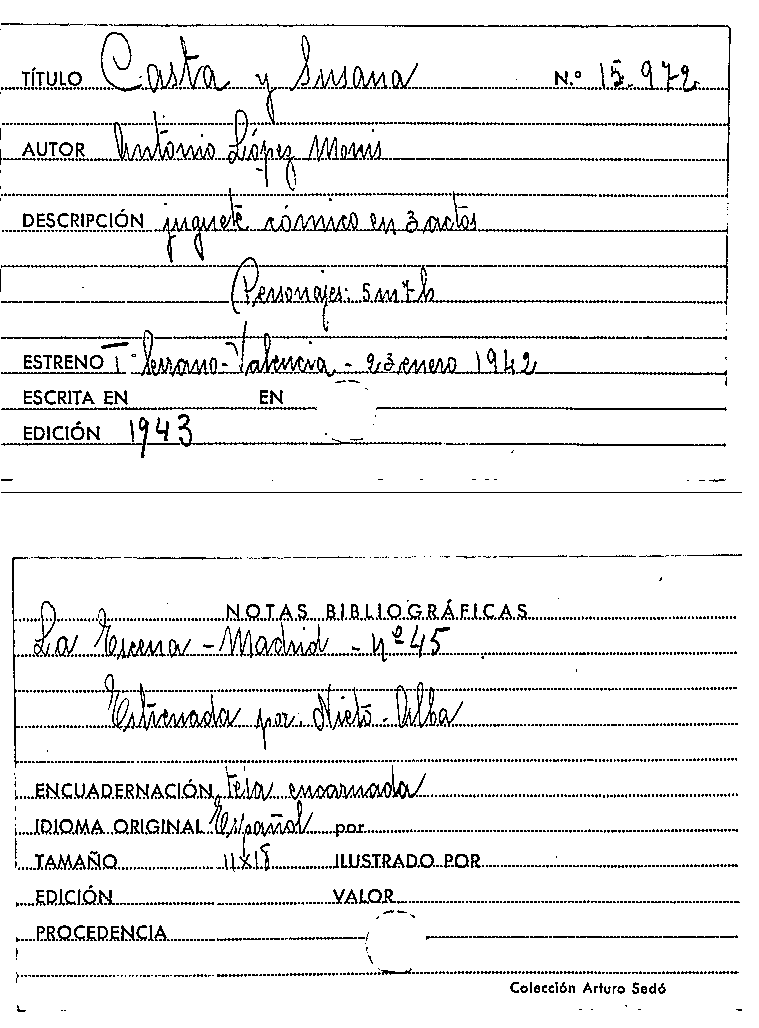 TÍTULO Casta y Susana N.º 15.972
AUTOR Antonio López Monis
DESCRIPCIÓN juguete cómico en 3 actos
Personajes: 5 m 7 h
ESTRENO T.º Serrano - Valencia - 23 enero 1942
ESCRITA EN EN
EDICIÓN 1943
NOTAS BIBLIOGRÁFICAS
La Escena - Madrid - nº 45
Estrenada por: Nieto - Alba
ENCUADERNACIÓN tela encarnada
IDIOMA ORIGINAL Español por
TAMAÑO 11x18 ILUSTRADO POR
EDICIÓN VALOR
PROCEDENCIA
Colección Arturo Sedó